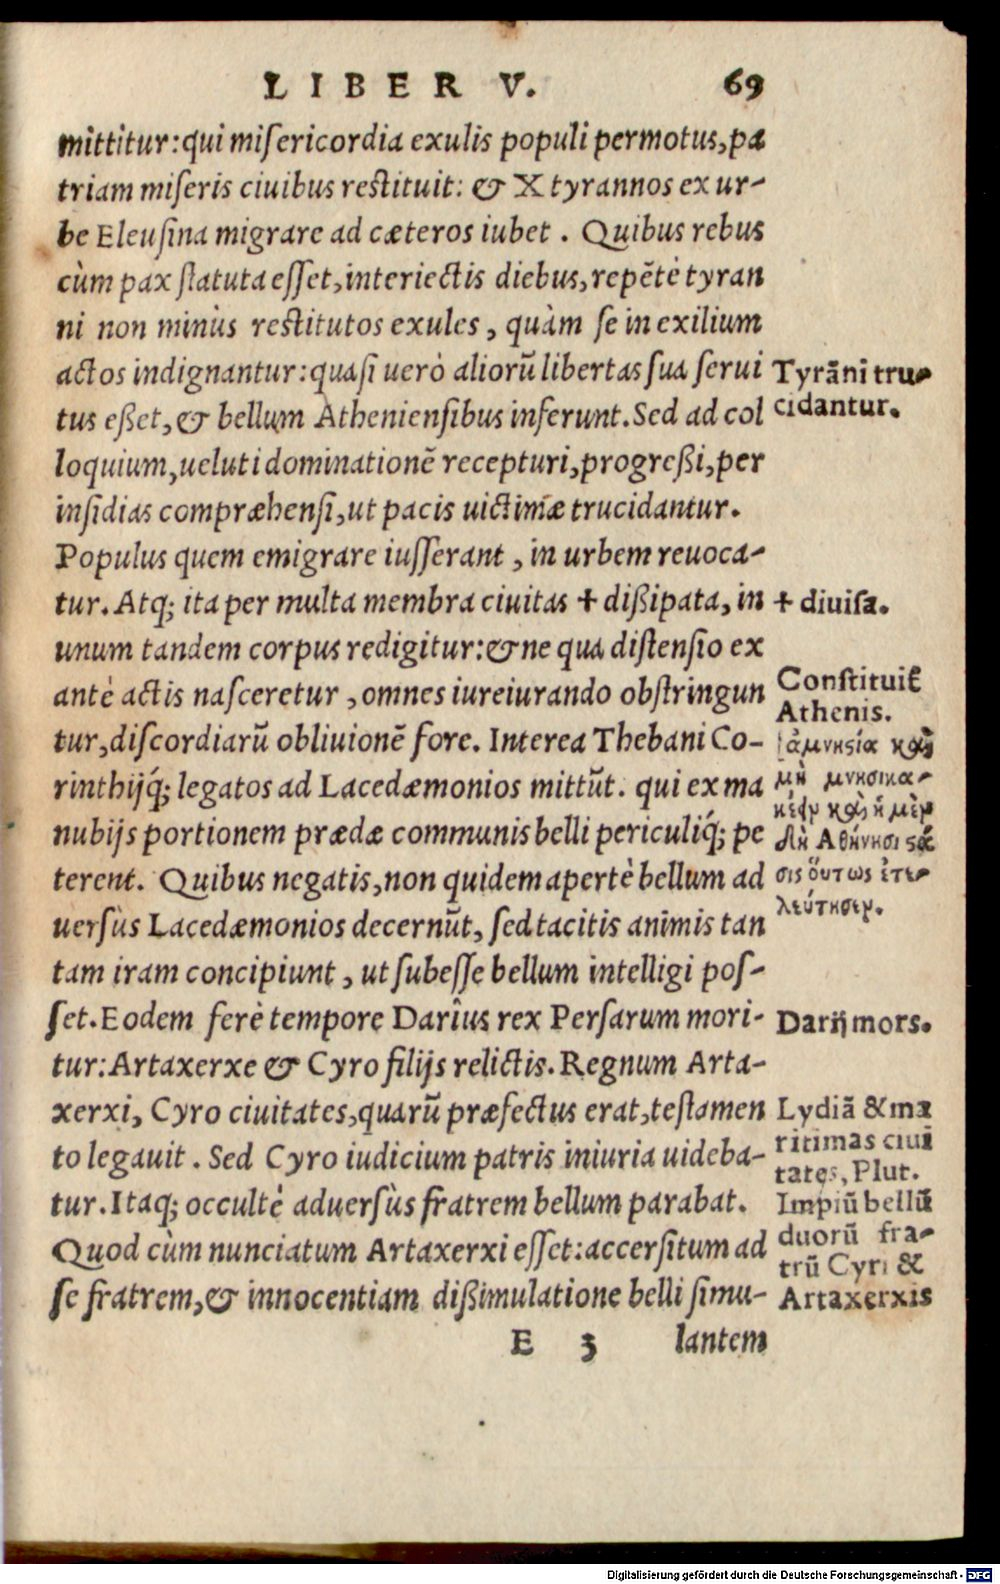 LIBER V. 69
mittitur: qui misericordia exulis populi permotus, pa
triam miseris ciuibus restituit: & X tyrannos ex ur-
be Eleusina migrare ad cæteros iubet. Quibus rebus
cùm pax statuta esset, interiectis diebus, repẽtè tyran
ni non minùs restitutos exules, quàm se in exilium
actos indignantur: quasi uerò aliorũ libertas sua serui
tus eßet, & bellum Atheniensibus inferunt. Sed ad col
loquium, ueluti dominationẽ recepturi, progreßi, per
insidias compræhensi, ut pacis uictimæ trucidantur.
Populus quem emigrare iusserant, in urbem reuoca-
tur. Atq; ita per multa membra ciuitas + dißipata, in
unum tandem corpus redigitur: & ne qua distensio ex
antè actis nasceretur, omnes iureiurando obstringun
tur, discordiarũ obliuionẽ fore. Interea Thebani Co-
rinthijq́; legatos ad Lacedæmonios mittũt. qui ex ma
nubijs portionem prædæ communis belli periculiq́; pe
terent. Quibus negatis, non quidem apertè bellum ad
uersùs Lacedæmonios decernũt, sed tacitis animis tan
tam iram concipiunt, ut subesse bellum intelligi pos-
set. Eodem ferè tempore Darîus rex Persarum mori-
tur: Artaxerxe & Cyro filijs relictis. Regnum Arta-
xerxi, Cyro ciuitates, quarũ præfectus erat, testamen
to legauit. Sed Cyro iudicium patris iniuria uideba-
tur. Itaq; occultè aduersùs fratrem bellum parabat.
Quod cùm nunciatum Artaxerxi esset: accersitum ad
se fratrem, & innocentiam dißimulatione belli simu-
E 3 lantem
Tyrãni tru-
cidantur.
+ diuisa.
Constituit̃
Athenis.
ἀμνησία καὶ
μὴ μνησικα-
κεῖν καὶ ἡ μὲν
δὴ Ἀθήνησι στά
σις οὕτως ἐτε-
λεύτησεν.
Darij mors.
Lydiã & ma
ritimas ciui
tates, Plut.
Impiũ bellũ
duorũ fra-
trũ Cyri &
Artaxerxis
Digitalisierung gefördert durch die Deutsche Forschungsgemeinschaft - DFG